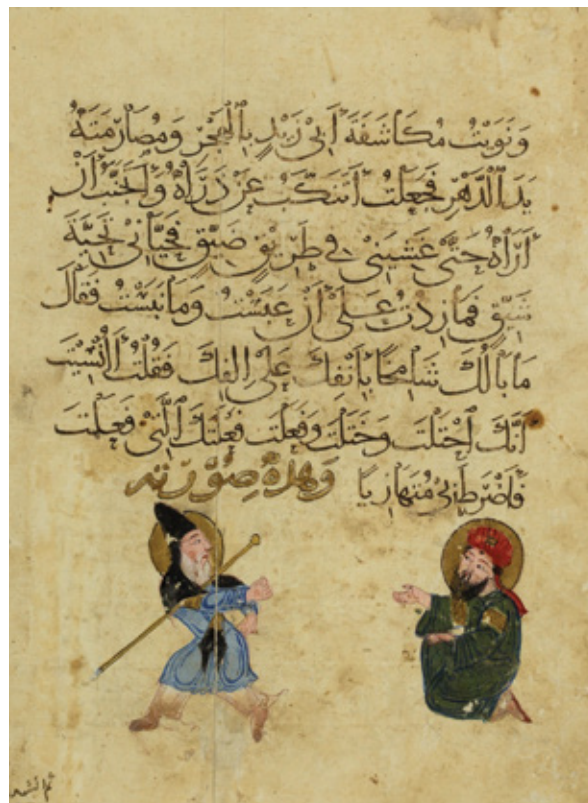 وَنَوَيْتُ مُكَاشَفَةَ أَبِي زَيْدٍ بِالْهَجْرِ وَمُصَارَمَتَهُ
يَدَ الدَّهْرِ فَجَعَلْتُ أَتَنَكَّبُ عَنْ ذَرَاهُ وَأَتَجَنَّبُ أَنْ
أَرَاهُ حَتَّى غَشِيَنِي فِي طَرِيقٍ ضَيِّقٍ فَحَيَّانِي تَحِيَّةَ
شَيِّقٍ فَمَا زِدْتُ عَلَى أَنْ عَبَسْتُ وَمَا نَبَسْتُ فَقَالَ
مَا بَالُكَ شَامِخًا بِأَنْفِكَ عَلَى إِلْفِكَ فَقُلْتُ أَأُنْسِيتَ
أَنَّكَ احْتَلْتَ وَخَتَلْتَ وَفَعَلْتَ فَعْلَتَكَ الَّتِي فَعَلْتَ
فَأَضْرَطَ بِي مُتَهَازِيًا وَهَذِهِ صُورَتُهُ